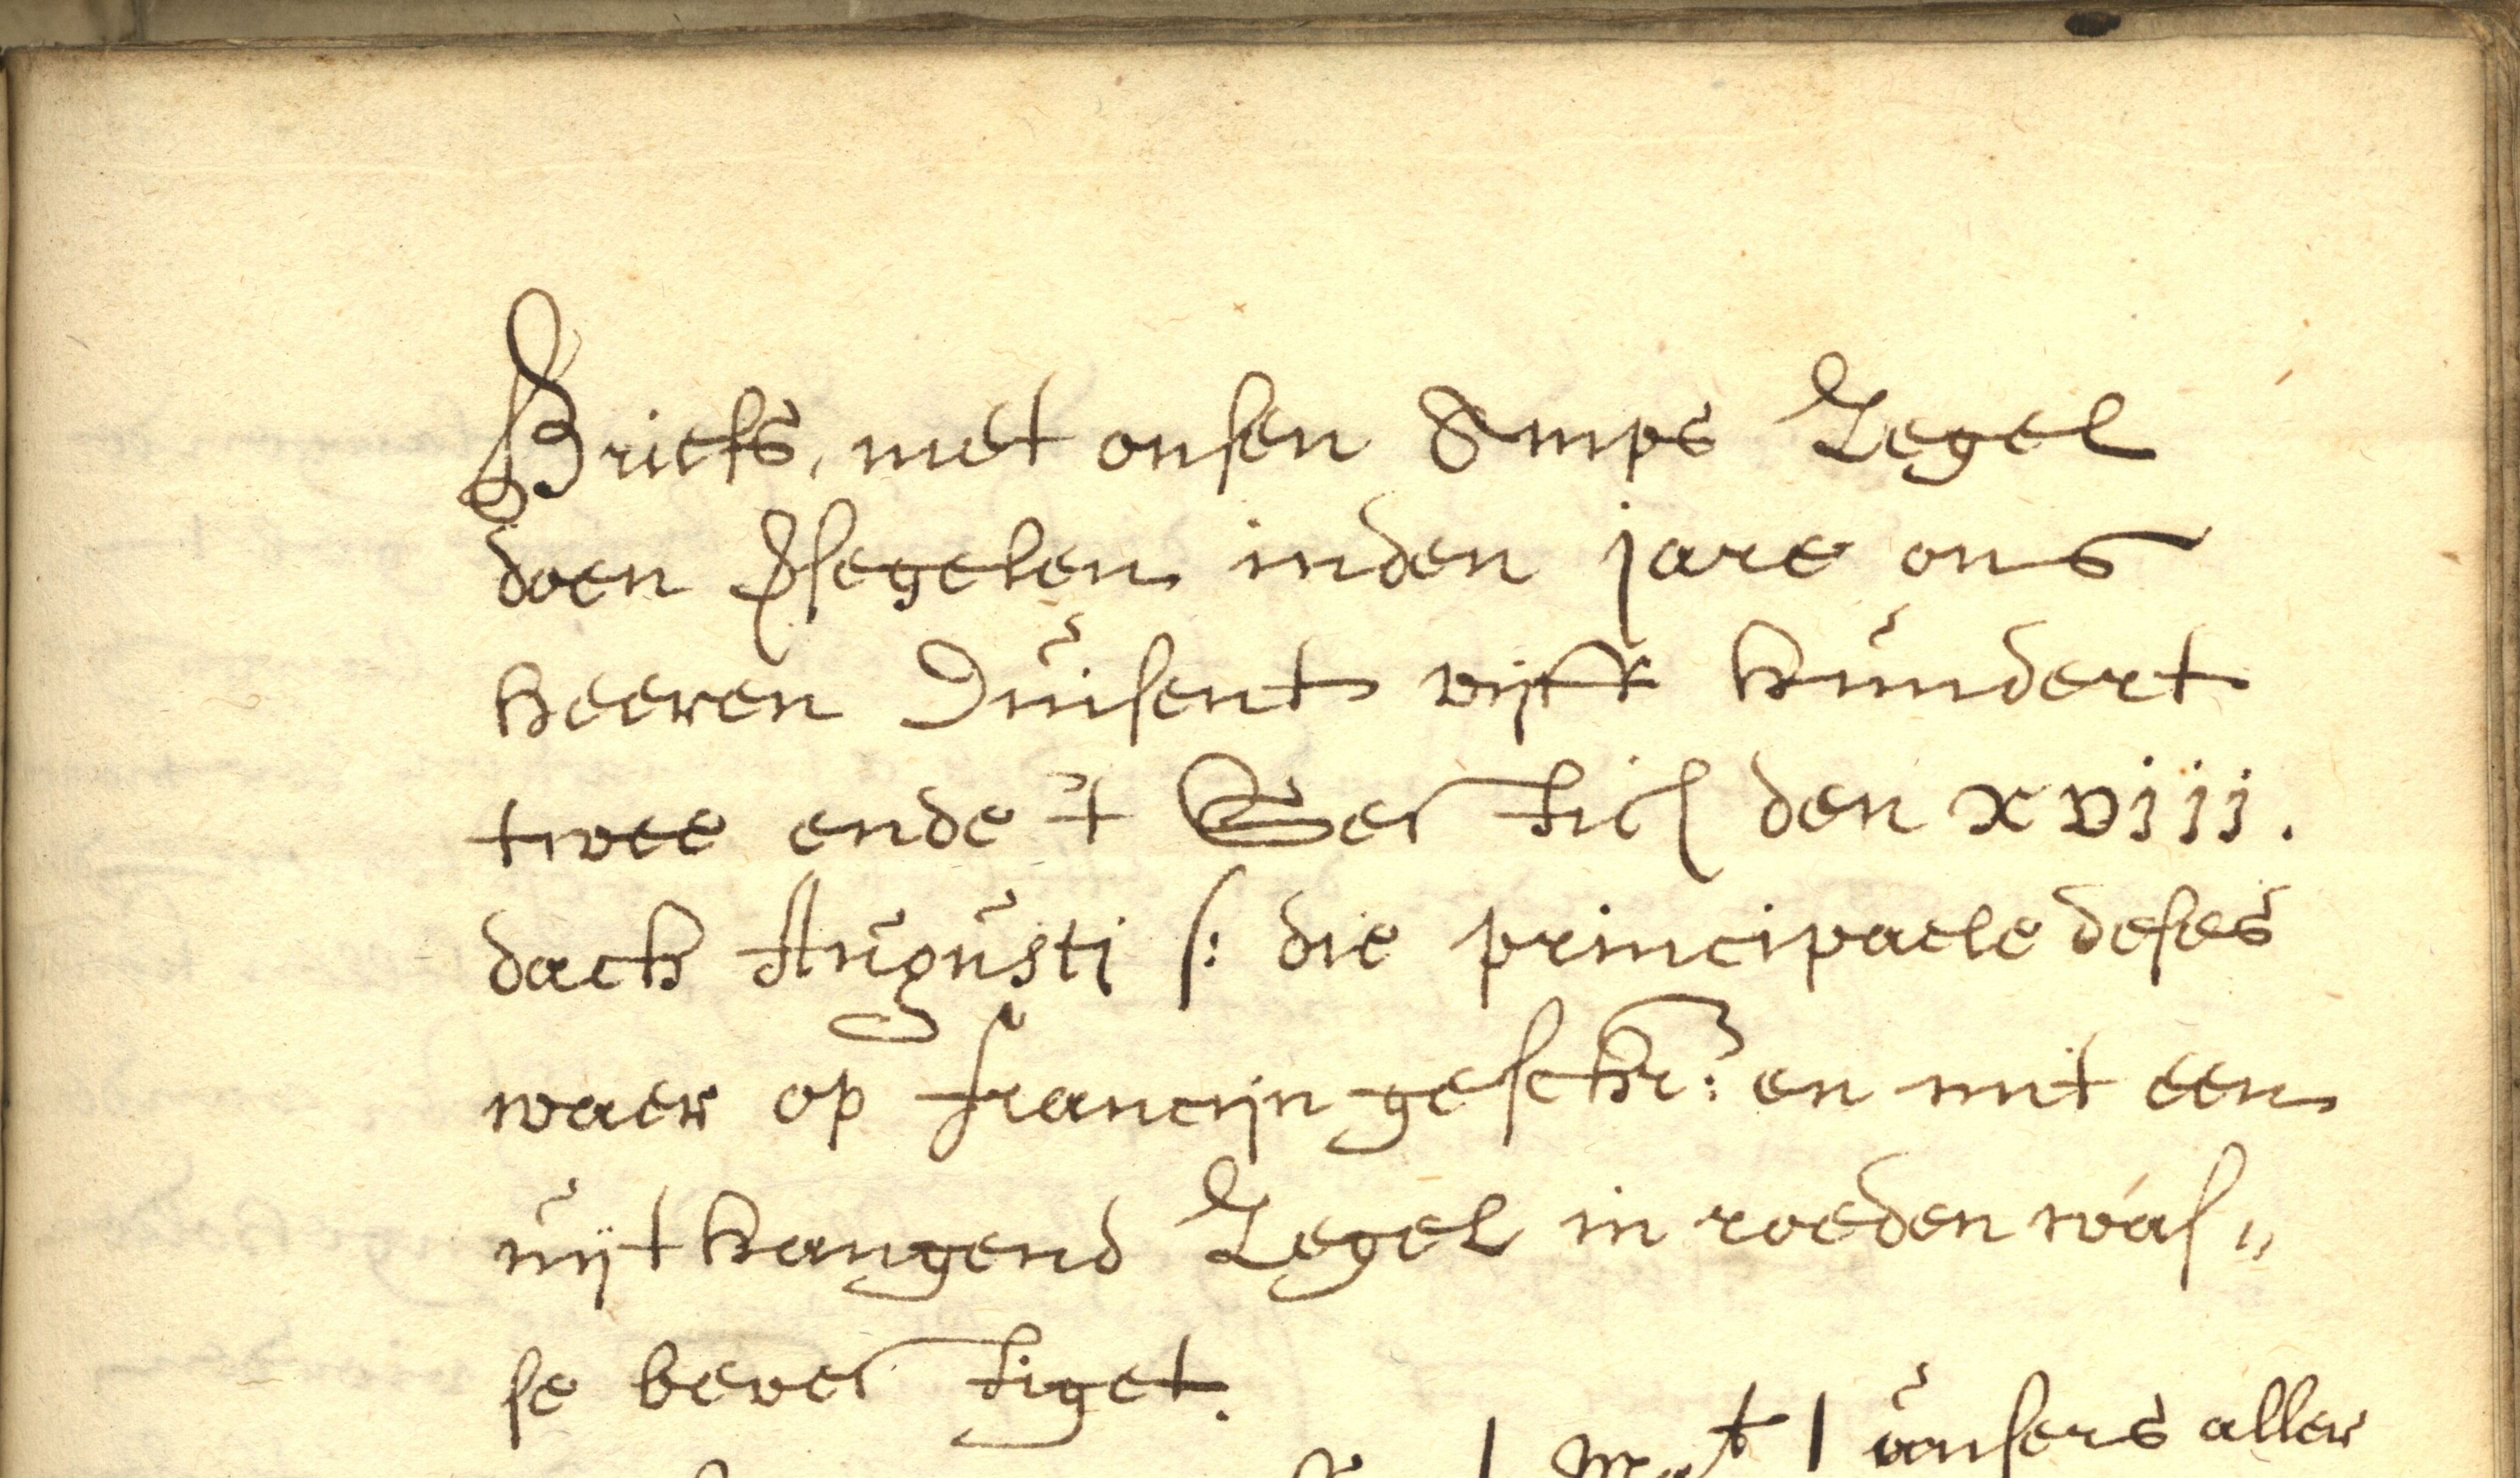 Briefs, met onsen Amps Zegel
doen ꝟsegelen inden jare ons
heeren Duisent vijff hundert
twee ende t Sestich den xviii.
dach Augusti /: die principaele deses
waer op francijn geschr: en mit een
uijthangend Zegel in roeden wasʺ
se bevestiget.
unsers aller